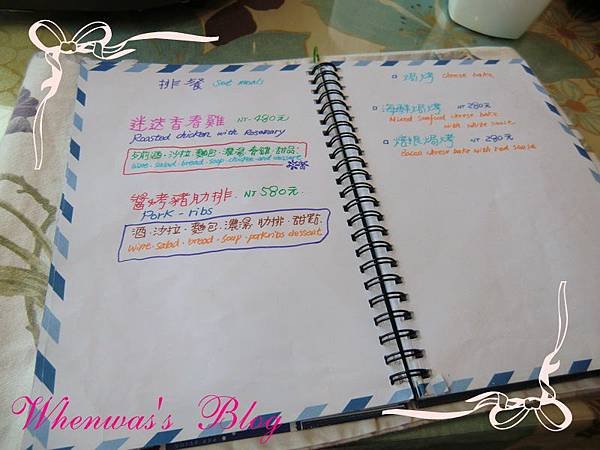 排餐 Set meals
迷迭香春雞 NT 480元
Roasted chicken with Rosemary
沙拉.麵包.濃湯.春雞.甜品.
wine.salad.bread.soup.chicken and dessert
醬烤豬肋排. NT 580元.
Pork-ribs
酒.沙拉.麵包.濃湯.肋排.甜點
wine.salad.bread.soup.porkribs dessert
焗烤 cheese bake
海鮮焗烤 NT 280元
Mixed seafood cheese bake
with white sauce
培根焗烤 NT 280元
Bacon cheese bake with red sauce
Whenwas's Blog